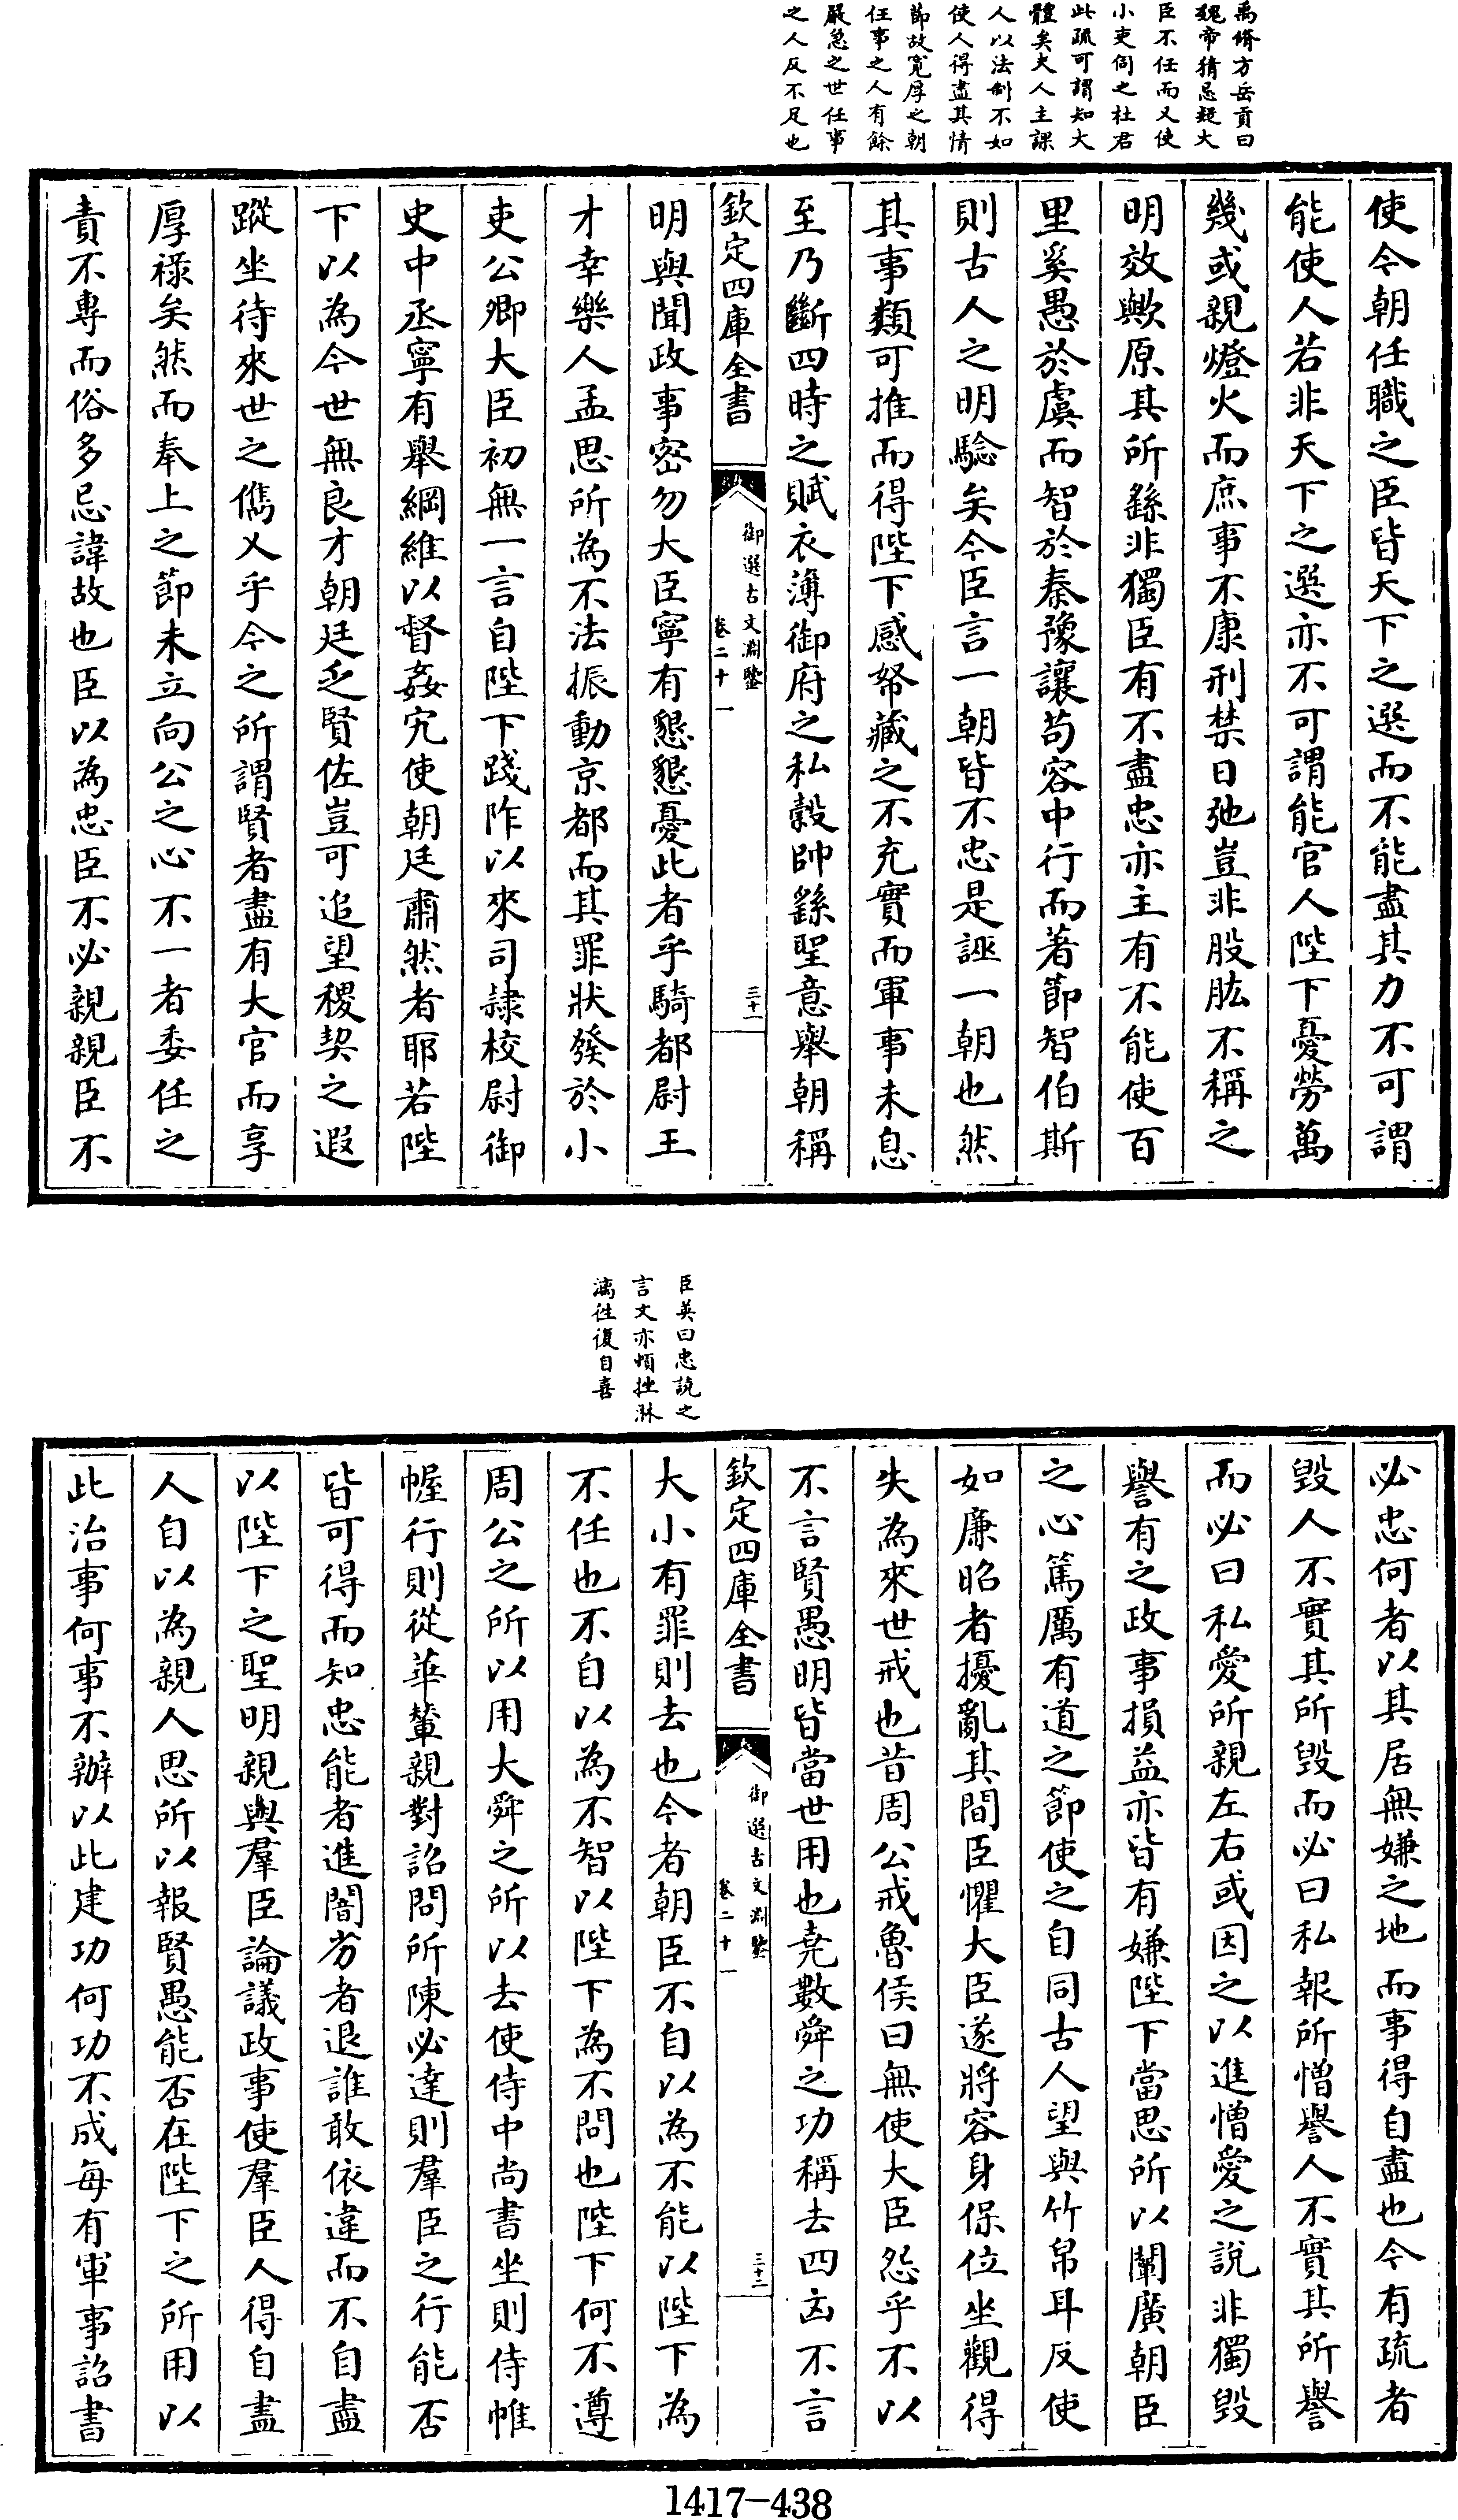 禹脩方岳貢曰
魏帝猜忌疑大
臣不任而又使
小吏伺之杜君
此疏可謂知大
體矣夫人主課
人以法制不如
使人得盡其情
節故寬厚之朝
任事之人有餘
嚴急之世任事
之人反不足也
使今朝任職之臣皆天下之選而不能盡其力不可謂
能使人若非天下之選亦不可謂能官人陛下憂勞萬
幾或親燈火而庶事不康刑禁日弛豈非股肱不稱之
明效歟原其所繇非獨臣有不盡忠亦主有不能使百
里奚愚於虞而智於秦豫讓苟容中行而著節智伯斯
則古人之明驗矣今臣言一朝皆不忠是誣一朝也然
其事類可推而得陛下感帑藏之不充實而軍事未息
至乃斷四時之賦衣薄御府之私穀帥繇聖意舉朝稱
欽定四庫全書
御選古文淵鑒
卷二十一
三十一
明與聞政事密勿大臣寧有懇懇憂此者乎騎都尉王
才幸樂人孟思所為不法振動京都而其罪狀發於小
吏公卿大臣初無一言自陛下踐阼以來司隷校尉御
史中丞寧有舉綱維以督姦宄使朝廷肅然者耶若陛
下以為今世無良才朝廷乏賢佐豈可追望稷契之遐
蹤坐待來世之儁乂乎今之所謂賢者盡有大官而享
厚祿矣然而奉上之節未立向公之心不一者委任之
責不專而俗多忌諱故也臣以為忠臣不必親親臣不
臣英曰忠說之
言文亦頓挫淋
漓往復自喜
必忠何者以其居無嫌之地而事得自盡也今有疏者
毀人不實其所毀而必曰私報所憎譽人不實其所譽
而必曰私愛所親左右或因之以進憎愛之說非獨毀
譽有之政事損益亦皆有嫌陛下當思所以闡廣朝臣
之心篤厲有道之節使之自同古人望與竹帛耳反使
如廉昭者擾亂其間臣懼大臣遂將容身保位坐觀得
失為來世戒也昔周公戒魯侯曰無使大臣怨乎不以
不言賢愚明皆當世用也堯數舜之功稱去四凶不言
欽定四庫全書
御選古文淵鑒
卷二十一
三十二
大小有罪則去也今者朝臣不自以為不能以陛下為
不任也不自以為不智以陛下為不問也陛下何不遵
周公之所以用大舜之所以去使侍中尚書坐則侍帷
幄行則從華輦親對詔問所陳必達則羣臣之行能否
皆可得而知忠能者進闇劣者退誰敢依違而不自盡
以陛下之聖明親與羣臣論議政事使羣臣人得自盡
人自以為親人思所以報賢愚能否在陛下之所用以
此治事何事不辦以此建功何功不成每有軍事詔書
1417-438